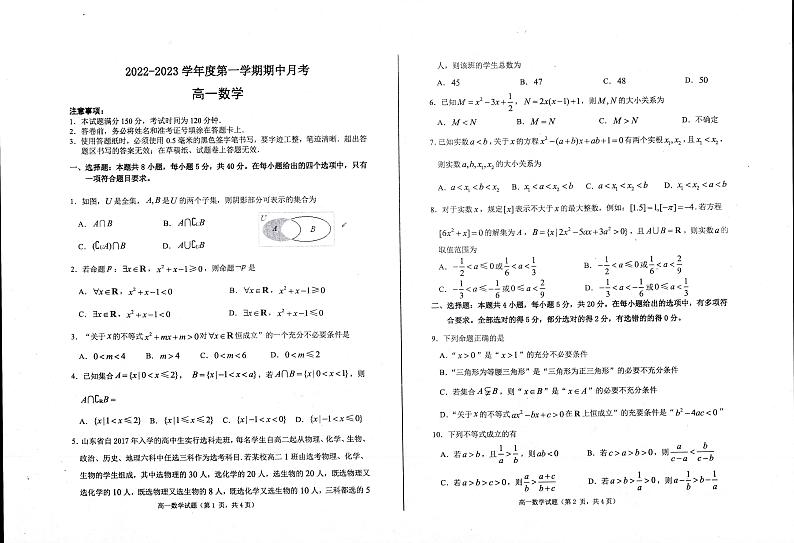 2022-2023 学年度第一学期期中月考
高一数学
注意事项：
1．本试题满分 150 分，考试时间为 120 分钟．
2．答卷前，务必将姓名和准考证号填涂在答题卡上．
3．使用答题纸时，必须使用 0.5 毫米的黑色签字笔书写，要字迹工整，笔迹清晰．超出答
题区书写的答案无效；在草稿纸、试题卷上答题无效．
一、选择题：本题共 8 小题，每小题 5 分，共 40 分。在每小题给出的四个选项中，只有
一项符合题目要求。
1．如图，U 是全集，A, B 是 U 的两个子集，则阴影部分可表示的集合为
A．A∩B B．A∩∁UB
C．(∁UA)∩B D．A∪∁UB
U A B
2．若命题 P：∃x∈R，x²+x−1≥0，则命题¬P 是
A．∀x∈R，x²+x−1<0 B．∀x∈R，x²+x−1≥0
C．∃x∈R，x²+x−1<0 D．∃x∈R，x²+x−1≤0
3．“关于 x 的不等式 x²+mx+m>0 对∀x∈R 恒成立”的一个充分不必要条件是
A．0<m<4 B．m>4 C．0<m<6 D．0<m≤2
4．已知集合 A={x|0<x≤2}，B={x|-1<x<a}，若 A∩B={x|0<x<1}，则
A∩∁RB=
A．{x|1<x≤2} B．{x|1≤x≤2} C．{x|-1<x<0} D．{x|-1<x≤0}
5．山东省自 2017 年入学的高中生实行选科走班，每名学生自高二起从物理、化学、生物、
政治、历史、地理六科中任选三科作为选考科目．若某校高二 1 班由选考物理、化学、
生物的学生组成，其中选物理的 30 人，选化学的 20 人，选生物的 20 人，既选物理又
选化学的 10 人，既选物理又选生物的 8 人，既选化学又选生物的 10 人，三科都选的 5
高一数学试题（第 1 页，共 4 页）
人，则该班的学生总数为
A．45 B．47 C．48 D．50
6．已知 M=x²−3x+1/2，N=2x(x−1)+1，则 M, N 的大小关系为
A．M<N B．M=N C．M>N D．不确定
7．已知实数 a<b，关于 x 的方程 x²−(a+b)x+ab+1=0 有两个实根 x₁, x₂，且 x₁<x₂，
则实数 a, b, x₁, x₂ 的大小关系为
A．a<x₁<b<x₂ B．x₁<a<x₂<b C．a<x₁<x₂<b D．x₁<x₂<a<b
8．对于实数 x，规定[x]表示不大于 x 的最大整数，例如：[1.5]=1,[−π]=−4．若方程
[6x²+x]=0 的解集为 A，B={x|2x²−5ax+3a²>0}，且 A∪B=R，则实数 a 的
取值范围为
A．−1/2<a≤0 或 1/6<a<1/3 B．−1/2<a≤0 或 1/6<a<2/9
C．−1/3<a≤−1/6 或 0≤a<2/9 D．−1/3<a<−1/6 或 0≤a<1/3
二、选择题：本题共 4 小题，每小题 5 分，共 20 分。在每小题给出的选项中，有多项符
合要求。全部选对的得 5 分，部分选对的得 2 分，有选错的的得 0 分。
9．下列命题正确的是
A．“x>0”是“x>1”的充分不必要条件
B．“三角形为等腰三角形”是“三角形为正三角形”的必要不充分条件
C．若集合 A⫋B，则“x∈B”是“x∈A”的必要不充分条件
D．“关于 x 的不等式 ax²−bx+c>0 在 R 上恒成立”的充要条件是“b²−4ac<0”
10．下列不等式成立的有
A．若 a>b，且 1/a>1/b，则 ab<0 B．若 c>a>b>0，则 a/(c−a)<b/(c−b)
C．若 a>b>c>0，则 a/b>(a+c)/(b+c) D．若 a>b>1/a>0，则 a−1/b>b−1/a
高一数学试题（第 2 页，共 4 页）